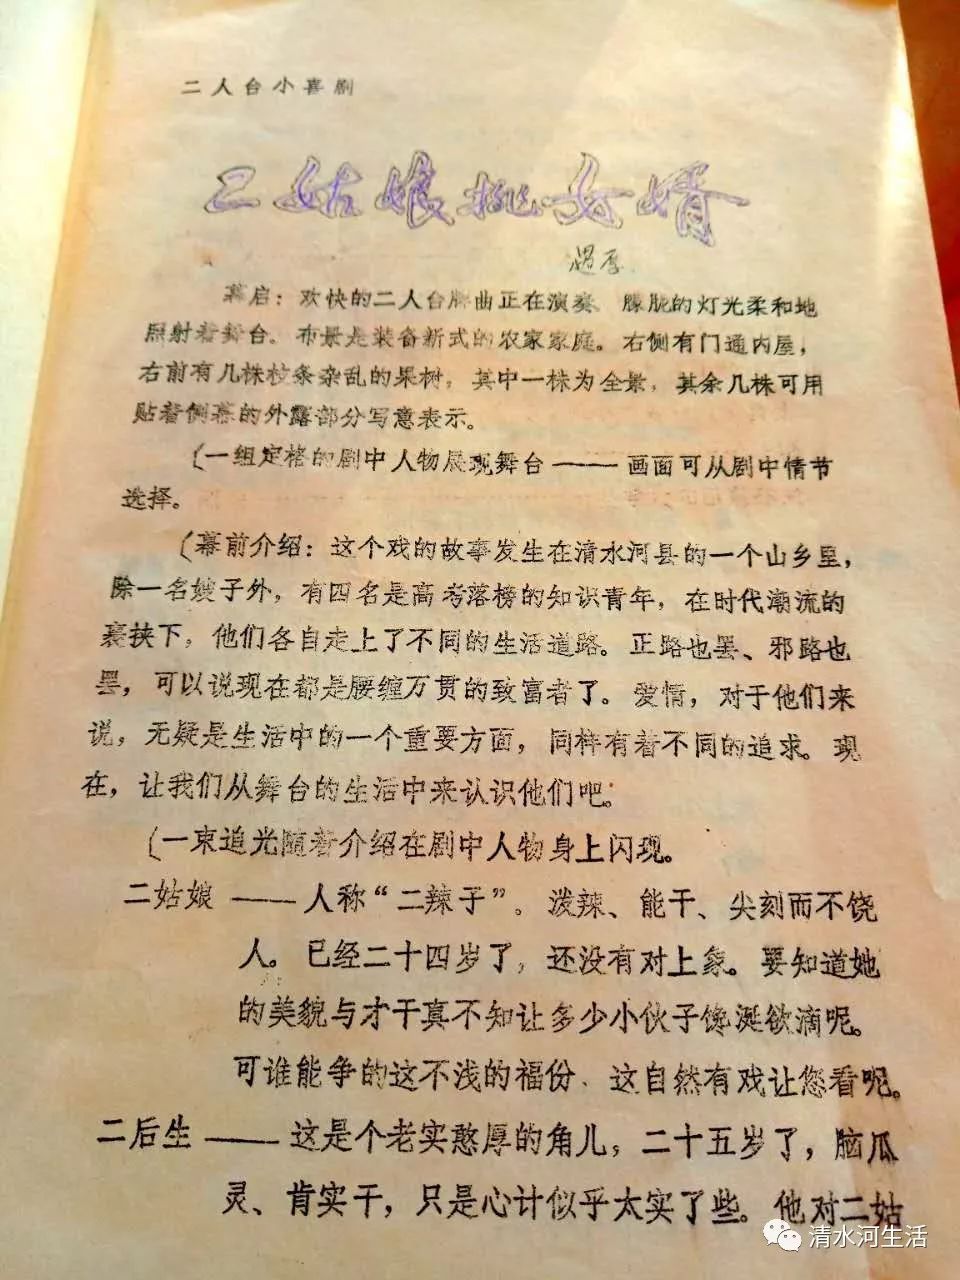 二人台小喜剧
二姑娘挑女婿
幕启：欢快的二人台牌曲正在演奏、朦胧的灯光柔和地
照射着舞台。布景是装备新式的农家家庭。右侧有门通内屋，
右前有几株枝条杂乱的果树，其中一株为全景，其余几株可用
贴着侧幕的外露部分写意表示。
（一组定格的剧中人物展现舞台——画面可从剧中情节
选择。
（幕前介绍：这个戏的故事发生在清水河县的一个山乡里，
除一名嫂子外，有四名是高考落榜的知识青年，在时代潮流的
裹挟下，他们各自走上了不同的生活道路。正路也罢、邪路也
罢，可以说现在都是腰缠万贯的致富者了。爱情，对于他们来
说，无疑是生活中的一个重要方面，同样有着不同的追求。现
在，让我们从舞台的生活中来认识他们吧。
（一束追光随着介绍在剧中人物身上闪现。
二姑娘——人称“二辣子”。泼辣、能干、尖刻而不饶
人。已经二十四岁了，还没有对上象。要知道她
的美貌与才干真不知让多少小伙子馋涎欲滴呢。
可谁能争的这不浅的福份、这自然有戏让您看呢。
二后生——这是个老实憨厚的角儿，二十五岁了，脑瓜
灵、肯实干，只是心计似乎太实了些。他对二姑
清水河生活